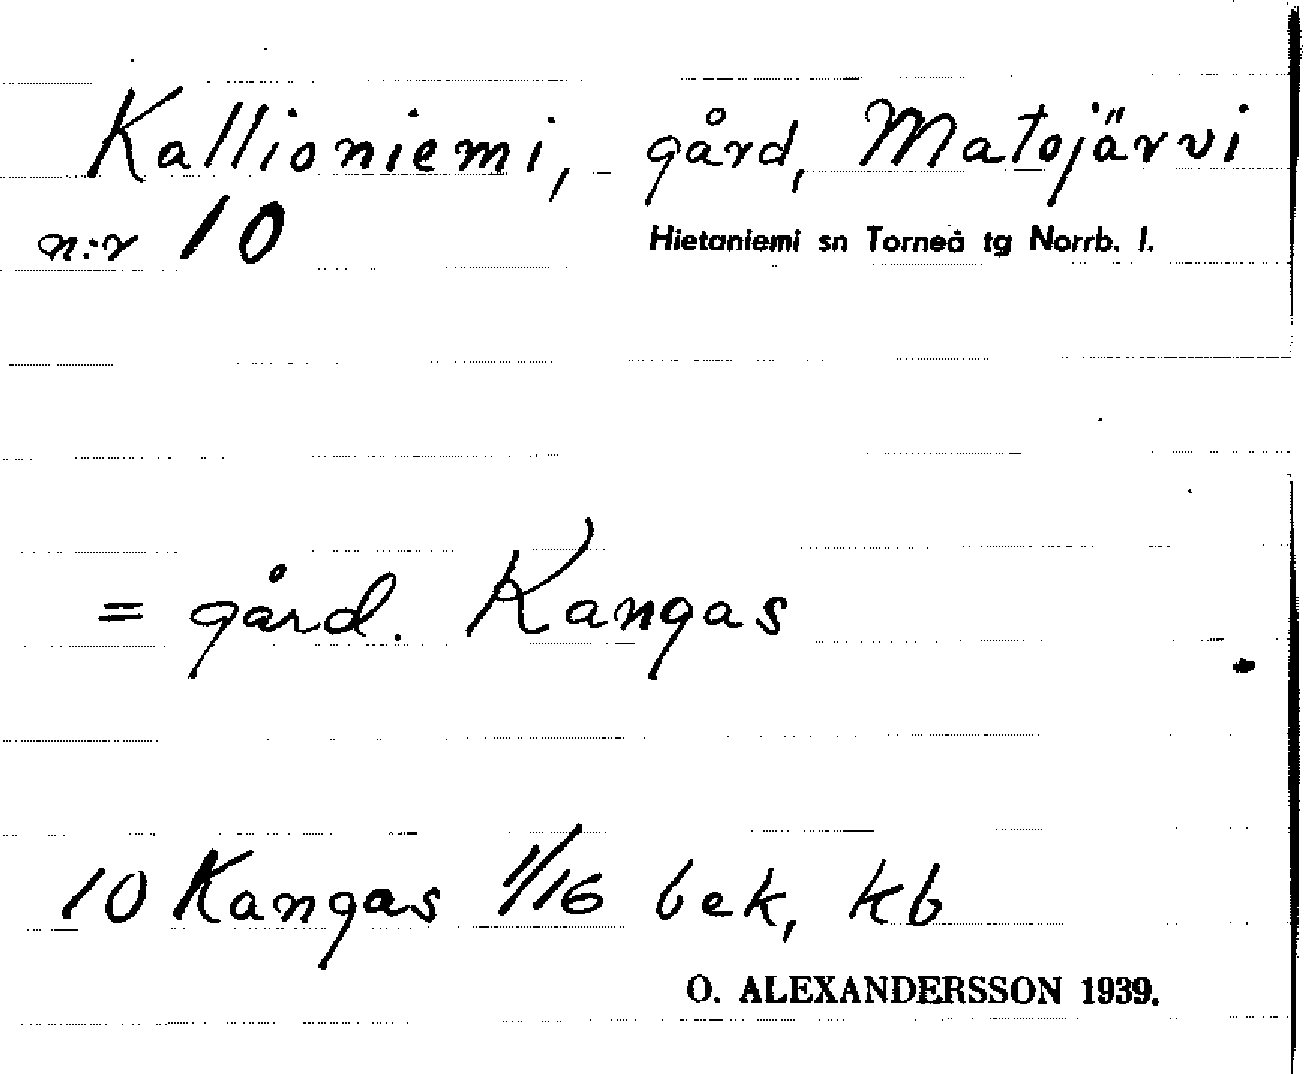 Kallioniemi, gård, Matojärvi
n:r 10 Hietaniemi sn Torneå tg Norrb. l.
= gård. Kangas
10 Kangas 1/16 bek, kb
O. ALEXANDERSSON 1939.